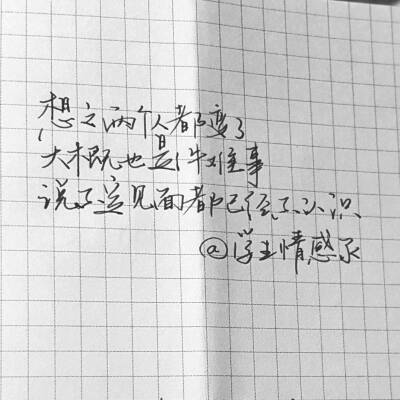 想之两个人都变了
大概也是件难事
说不定见面都已经不认识
@学生情感丞